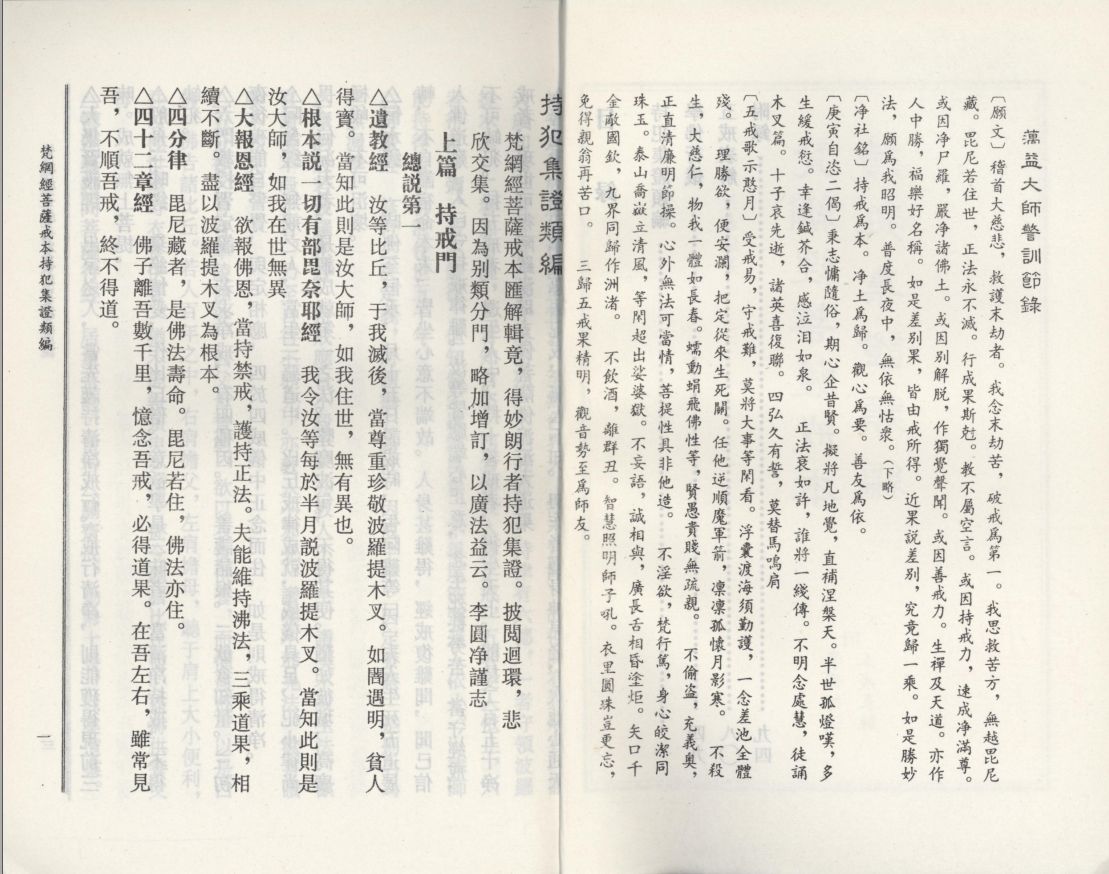 蕅益大師警訓節錄
〔願文〕稽首大慈悲，救護末劫者。我念末劫苦，破戒爲第一。我思救苦方，無越毘尼
藏。毘尼若住世，正法永不滅。行成果斯尅。教不屬空言。或因持戒力，速成净滿尊。
或因净尸羅，嚴净諸佛土。或因別解脱，作獨覺聲聞。或因善戒力。生禪及天道。亦作
人中勝，福樂好名稱。如是差別果，皆由戒所得。近果説差別，究竟歸一乘。如是勝妙
法，願爲我昭明。普度長夜中，無依無怙衆。（下略）
〔净社銘〕持戒爲本。净土爲歸。觀心爲要。善友爲依。
〔庚寅自恣二偈〕秉志慵隨俗，期心企昔賢。擬將凡地覺，直補涅槃天。半世孤燈嘆，多
生緩戒愆。幸逢鍼芥合，感泣泪如泉。　正法衰如許，誰將一綫傳。不明念處慧，徒誦
木叉篇。十子哀先逝，諸英喜復聯。四弘久有誓，莫替馬鳴肩
〔五戒歌示憨月〕受戒易，守戒難，莫將大事等閑看。浮囊渡海須勤護，一念差池全體
殘。理勝欲，便安瀾，把定從來生死關。任他逆順魔軍箭，凛凛孤懷月影寒。　不殺
生，大慈仁，物我一體如長春。蠕動蜎飛佛性等，賢愚貴賤無疏親。　不偷盜，充義奥，
正直清廉明節操。心外無法可當情，菩提性具非他造。　不淫欲，梵行篤，身心皎潔同
珠玉。泰山喬嶽立清風，等閑超出娑婆獄。不妄語，誠相與，廣長舌相昏塗炬。矢口千
金敵國欽，九界同歸作洲渚。　不飲酒，離群丑。智慧照明師子吼。衣里圓珠豈更忘，
免得親翁再苦口。　三歸五戒果精明，觀音勢至爲師友。
持犯集證類編
梵網經菩薩戒本匯解輯竟，得妙朗行者持犯集證。披閲迴環，悲
欣交集。因為别類分門，略加增訂，以廣法益云。李圓净謹志
上篇　持戒門
總説第一
△遺教經　汝等比丘，于我滅後，當尊重珍敬波羅提木叉。如闇遇明，貧人
得寶。當知此則是汝大師，如我住世，無有異也。
△根本説一切有部毘奈耶經　我令汝等每於半月説波羅提木叉。當知此則是
汝大師，如我在世無異
△大報恩經　欲報佛恩，當持禁戒，護持正法。夫能維持沸法，三乘道果，相
續不斷。盡以波羅提木叉為根本。
△四分律　毘尼藏者，是佛法壽命。毘尼若住，佛法亦住。
△四十二章經　佛子離吾數千里，憶念吾戒，必得道果。在吾左右，雖常見
吾，不順吾戒，終不得道。
梵網經菩薩戒本持犯集證類編
一